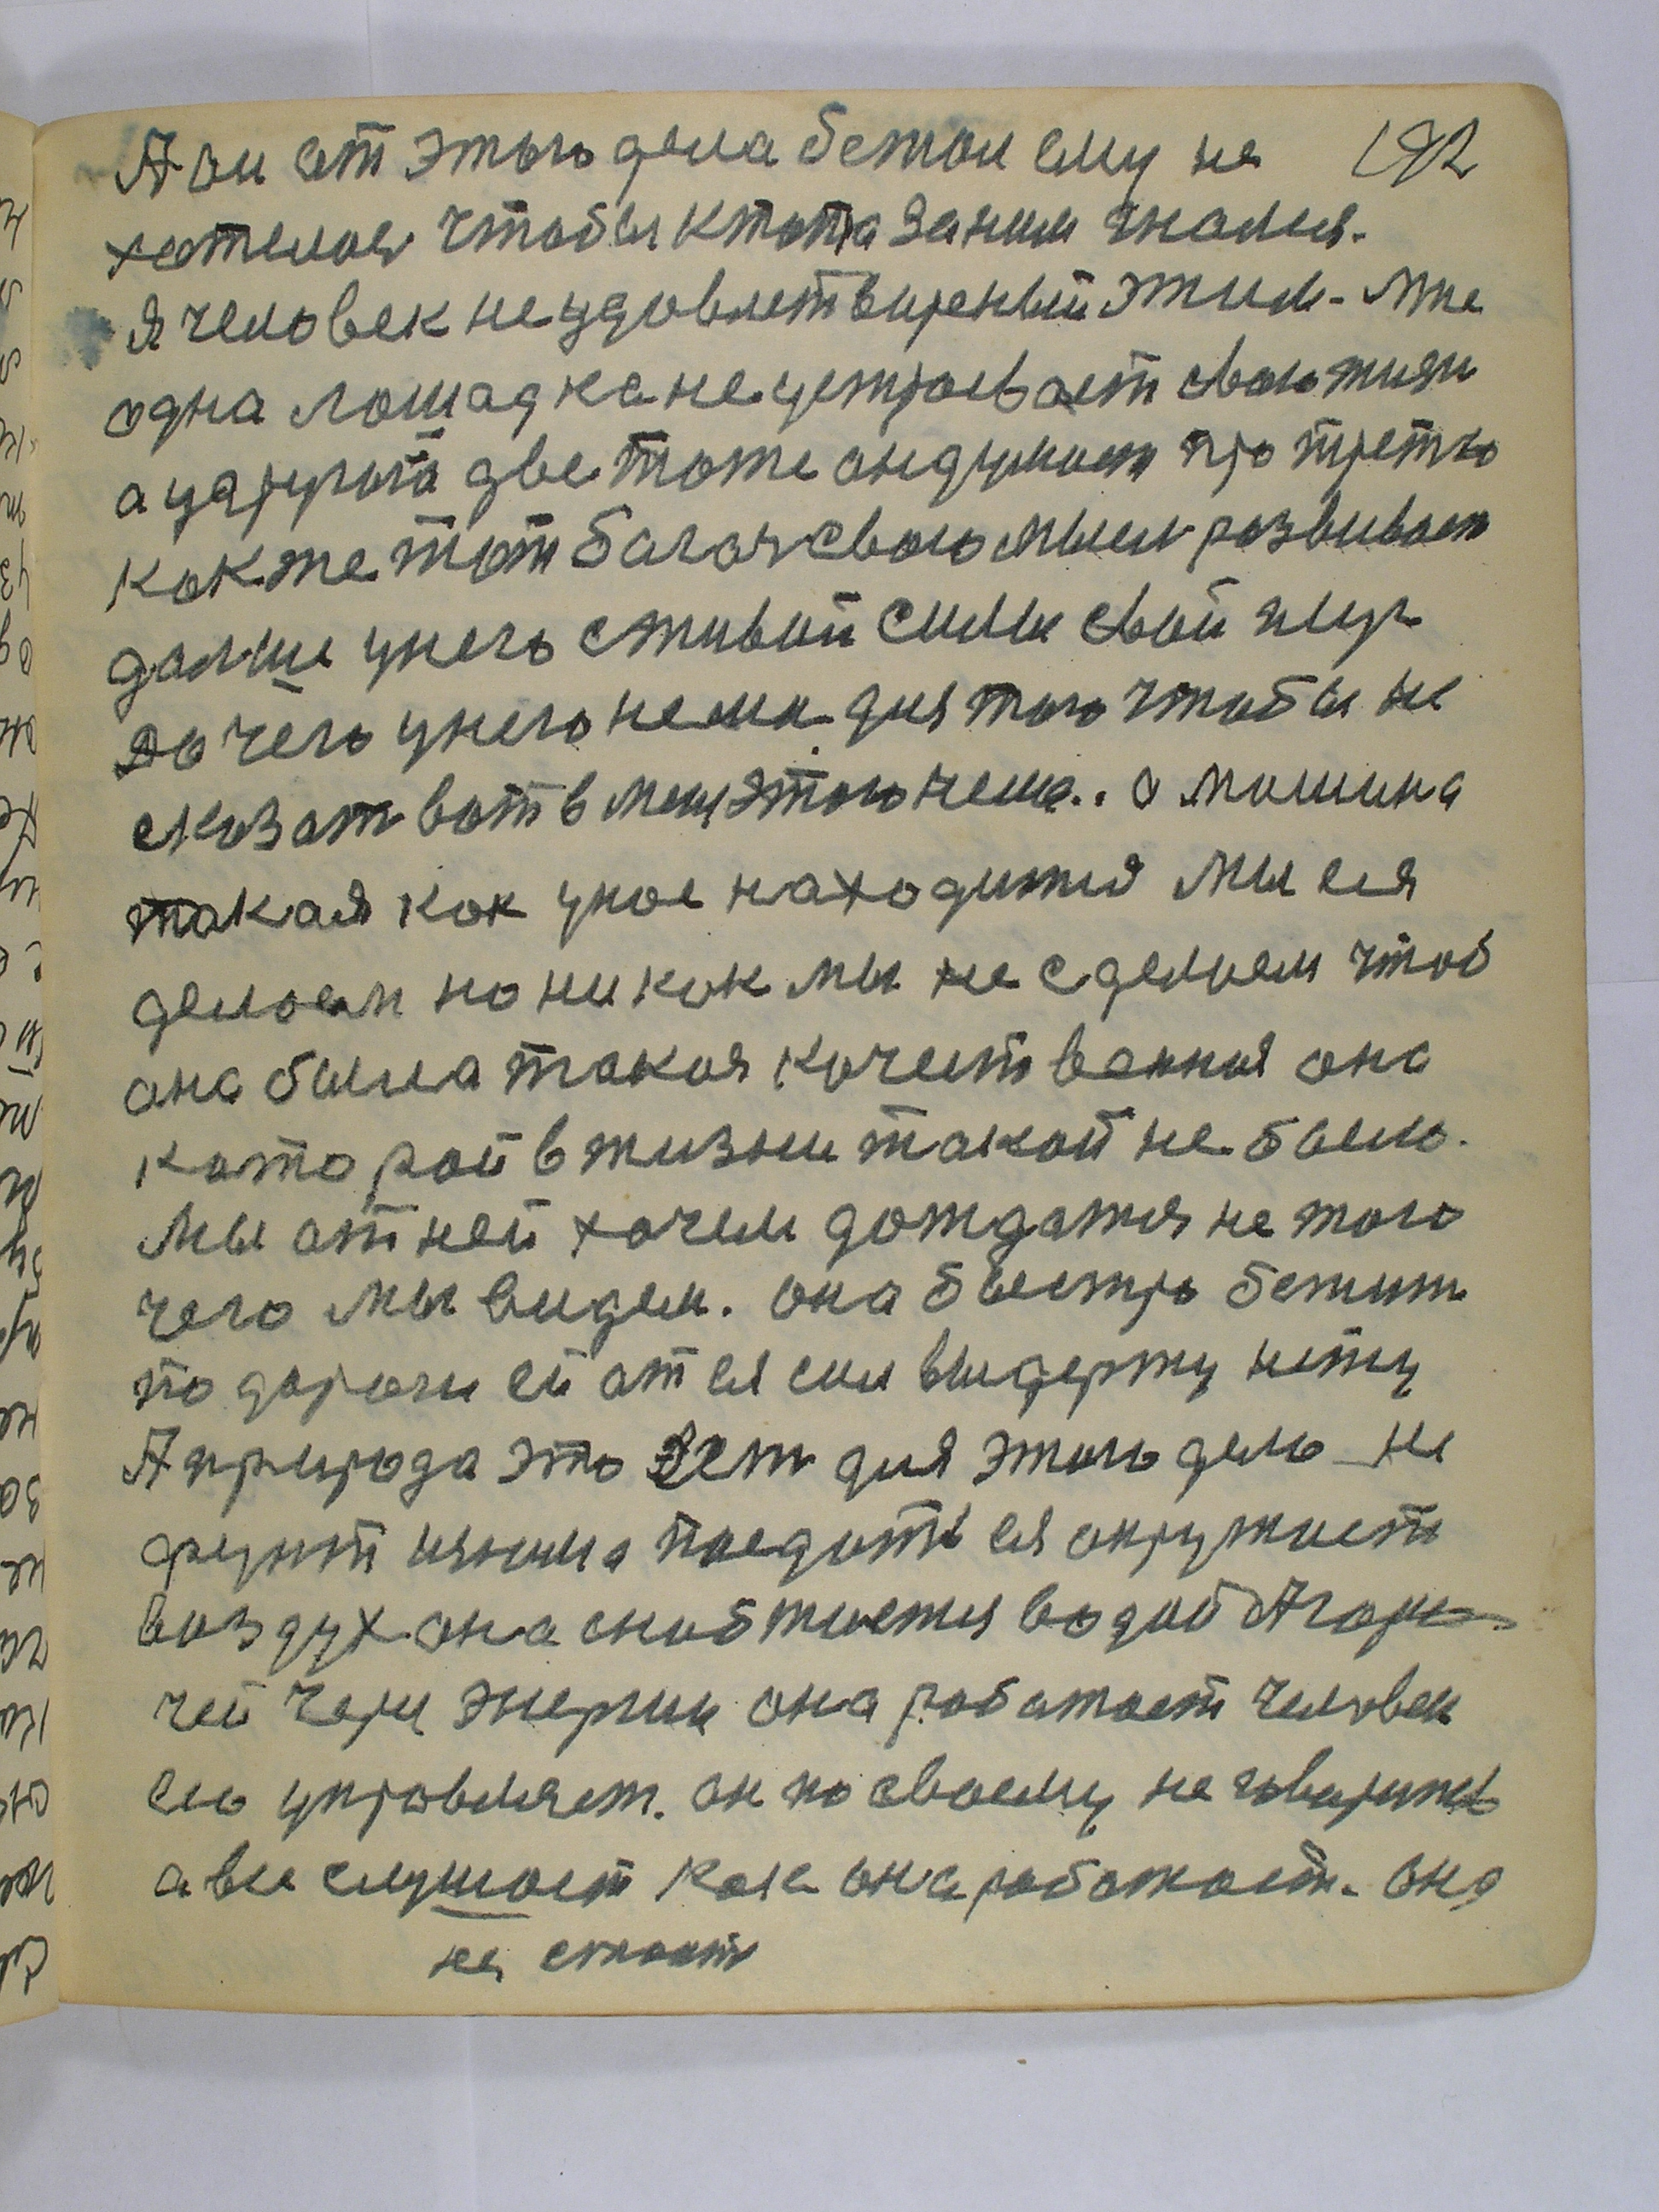 А он от этого дела бежал ему не 192
хотелося чтобы ктота заним гналися.
Я человек неудовлетвиреный этим. Мне
одна лошадка не устроевает свою жизн
а удругога две тоже ондумает про третю
как же тот багач свою мысл развивает
далше унего живой силы свой
чего унего нема для того чтобы не
сказат вот в меня этого нема. а машина
такая как унас находится мы ея
делаем но никак мы не сделаем чтоб
она была такая качественная она
которой в жизни такой не было.
Мы от ней хочем дождатся не того
чего мы видем. она быстро бежит
по дароги ей от ея сил выдержу нету
А природа это ест для этого дело не
фунт изюма поедат ея окружает
воздух она снабжается водой А горю-
чей через энергии она работает человек
ею управляет. он по своему не говорит
а все слушает как она работает. она
не стоит